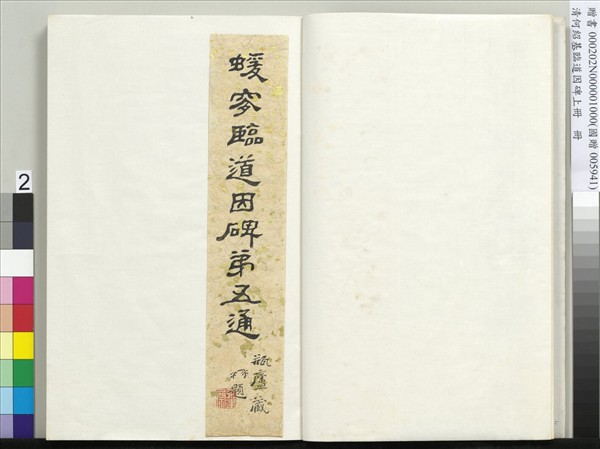 蝯叟臨道因碑第五通
瓶廬藏
題
贈書 000202N000001000(國贈 005941)
清何紹基臨道因碑上冊 冊
2